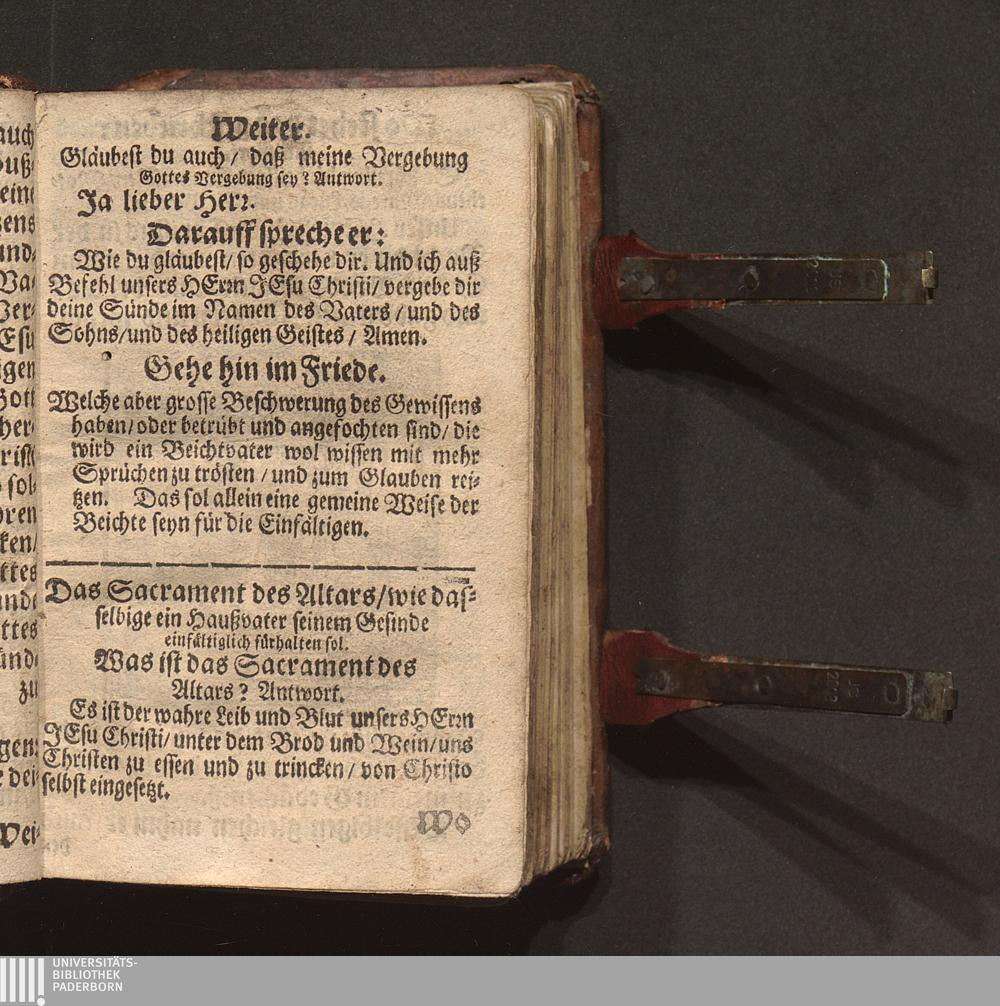 Weiter.
Gläubest du auch / daß meine Vergebung
Gottes Vergebung sey? Antwort.
Ja lieber Herr.
Darauff spreche er:
Wie du gläubest / so geschehe dir. Und ich auß
Befehl unsers HErrn JEsu Christi / vergebe dir
deine Sünde im Namen des Vaters / und des
Sohns / und des heiligen Geistes / Amen.
Gehe hin im Friede.
Welche aber grosse Beschwerung des Gewissens
haben / oder betrübt und angefochten sind / die
wird ein Beichtvater wol wissen mit mehr
Sprüchen zu trösten / und zum Glauben rei-
tzen. Das sol allein eine gemeine Weise der
Beichte seyn für die Einfältigen.
Das Sacrament des Altars / wie das-
selbige ein Haußvater seinem Gesinde
einfältiglich fürhalten sol.
Was ist das Sacrament des
Altars? Antwort.
Es ist der wahre Leib und Blut unsers HErrn
JEsu Christi / unter dem Brod und Wein / uns
Christen zu essen und zu trincken / von Christo
selbst eingesetzt.
Wo
UNIVERSITÄTS-
BIBLIOTHEK
PADERBORN